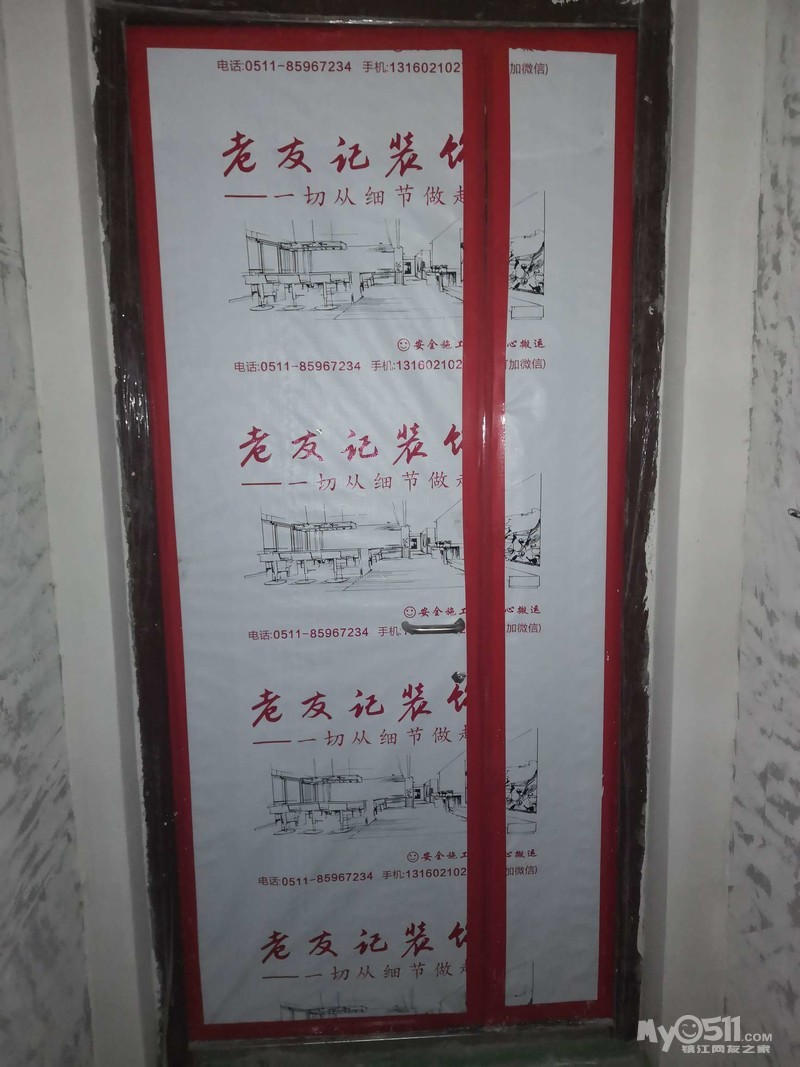 电话:0511-85967234 手机:1316021027 加微信)
老友记装饰
——一切从细节做起
安全施工 心搬运
电话:0511-85967234 手机:131602102 加微信)
老友记装饰
——一切从细节做起
安全施工 心搬运
电话:0511-85967234 手机: 加微信)
老友记装饰
——一切从细节做起
安全施工 心搬运
电话:0511-85967234 手机:131602102 加微信)
老友记装饰
——一切从细节做起
My0511.COM
镇江网友之家